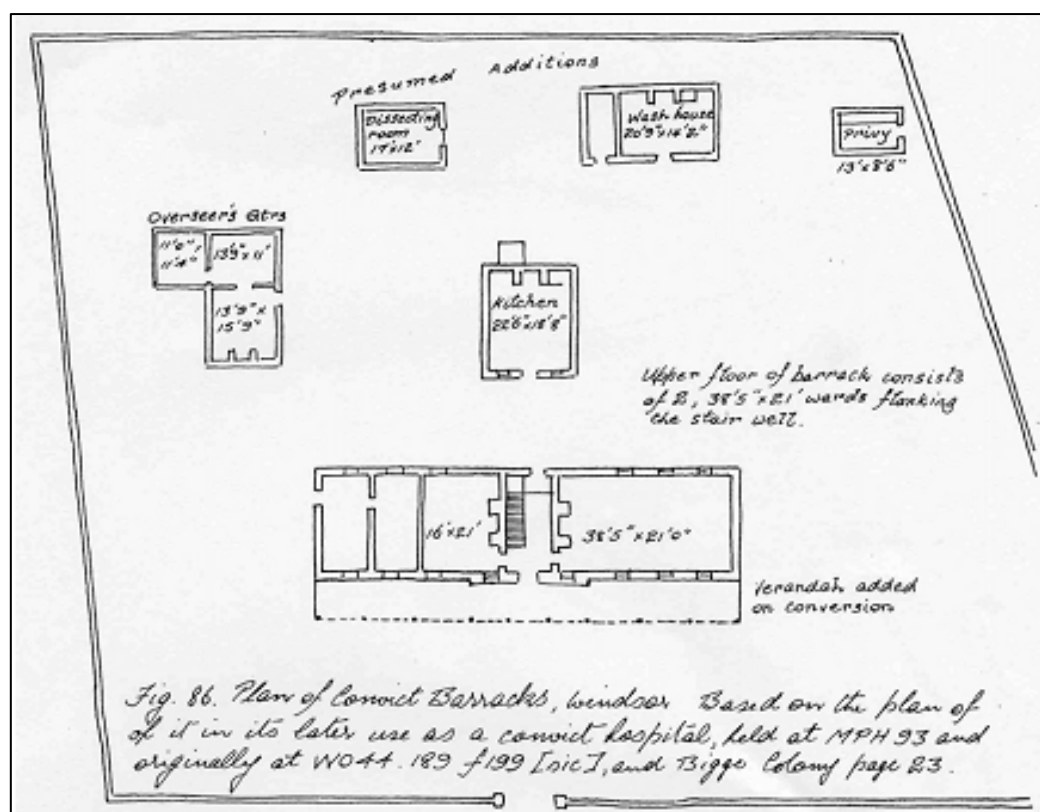 Presumed Additions
Dissecting
room
17'x12'
Wash house
20'9"x14'2"
Privy
13'x8'6"
Overseer's Qtrs
11'0" x
11'4"
13'9"x11'
13'9"x
15'9"
Kitchen
22'6"x18'8"
Upper floor of barrack consists
of 2, 38'5"x21' wards flanking
the stair well.
16'x21'
38'5"x21'0"
Verandah added
on conversion
Fig. 86. Plan of Convict Barracks, Windsor Based on the plan of
of it in its later use as a convict hospital, held at MPH 93 and
originally at WO44.189 f199 [sic], and Bigge Colony page 23.